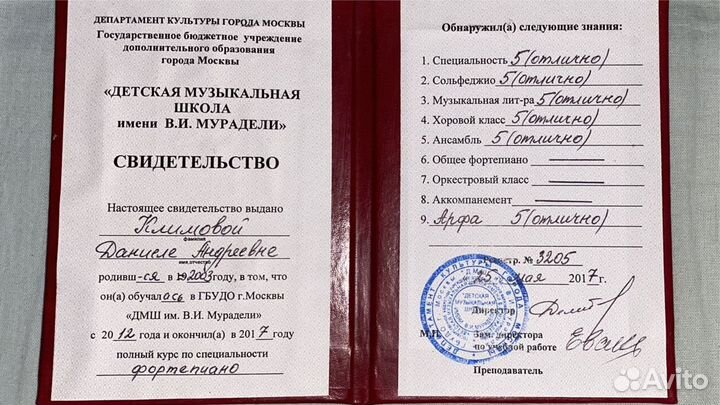 ДЕПАРТАМЕНТ КУЛЬТУРЫ ГОРОДА МОСКВЫ
Государственное бюджетное учреждение
дополнительного образования
города Москвы
«ДЕТСКАЯ МУЗЫКАЛЬНАЯ
ШКОЛА
имени В.И. МУРАДЕЛИ»
СВИДЕТЕЛЬСТВО
Настоящее свидетельство выдано
Климовой
фамилия
Даниеле Андреевне
имя, отчество
родивш-ся в 2003 году, в том, что
он(а) обучалась в ГБУДО г.Москвы
«ДМШ им. В.И. Мурадели»
с 2012 года и окончил(а) в 2017 году
полный курс по специальности
фортепиано
Обнаружил(а) следующие знания:
1. Специальность 5(отлично)
2. Сольфеджио 5(отлично)
3. Музыкальная лит-ра 5(отлично)
4. Хоровой класс 5(отлично)
5. Ансамбль 5(отлично)
6. Общее фортепиано
7. Оркестровый класс
8. Аккомпанемент
9. Арфа 5(отлично)
Регистр. № 3205
25 мая 2017г.
Директор
М.П. Зам. директора
по учебной работе
Преподаватель
Avito